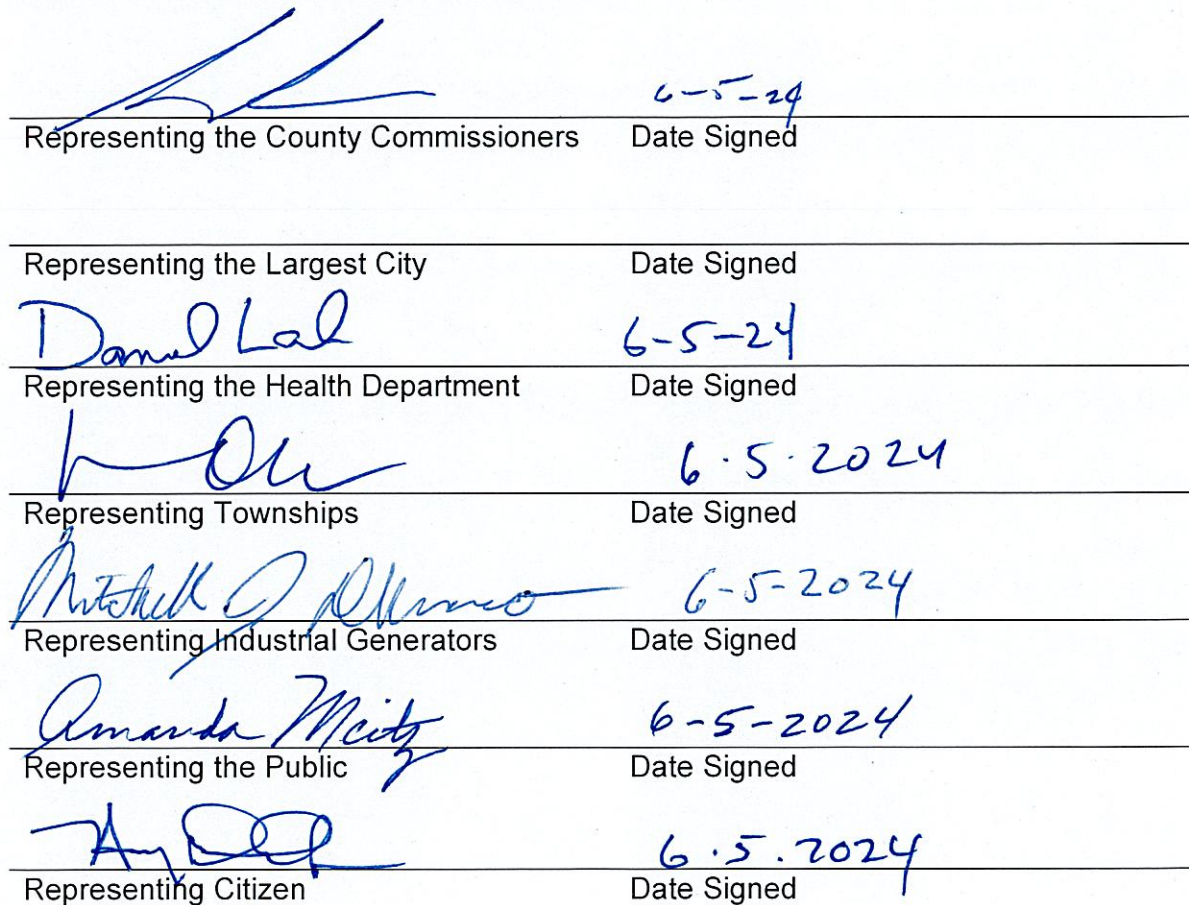 6-5-24
Representing the County Commissioners Date Signed
Representing the Largest City Date Signed
Daniel 6-5-24
Representing the Health Department Date Signed
6.5.2024
Representing Townships Date Signed
Mitchell J 6-5-2024
Representing Industrial Generators Date Signed
Amanda Meitz 6-5-2024
Representing the Public Date Signed
Amy 6.5.2024
Representing Citizen Date Signed